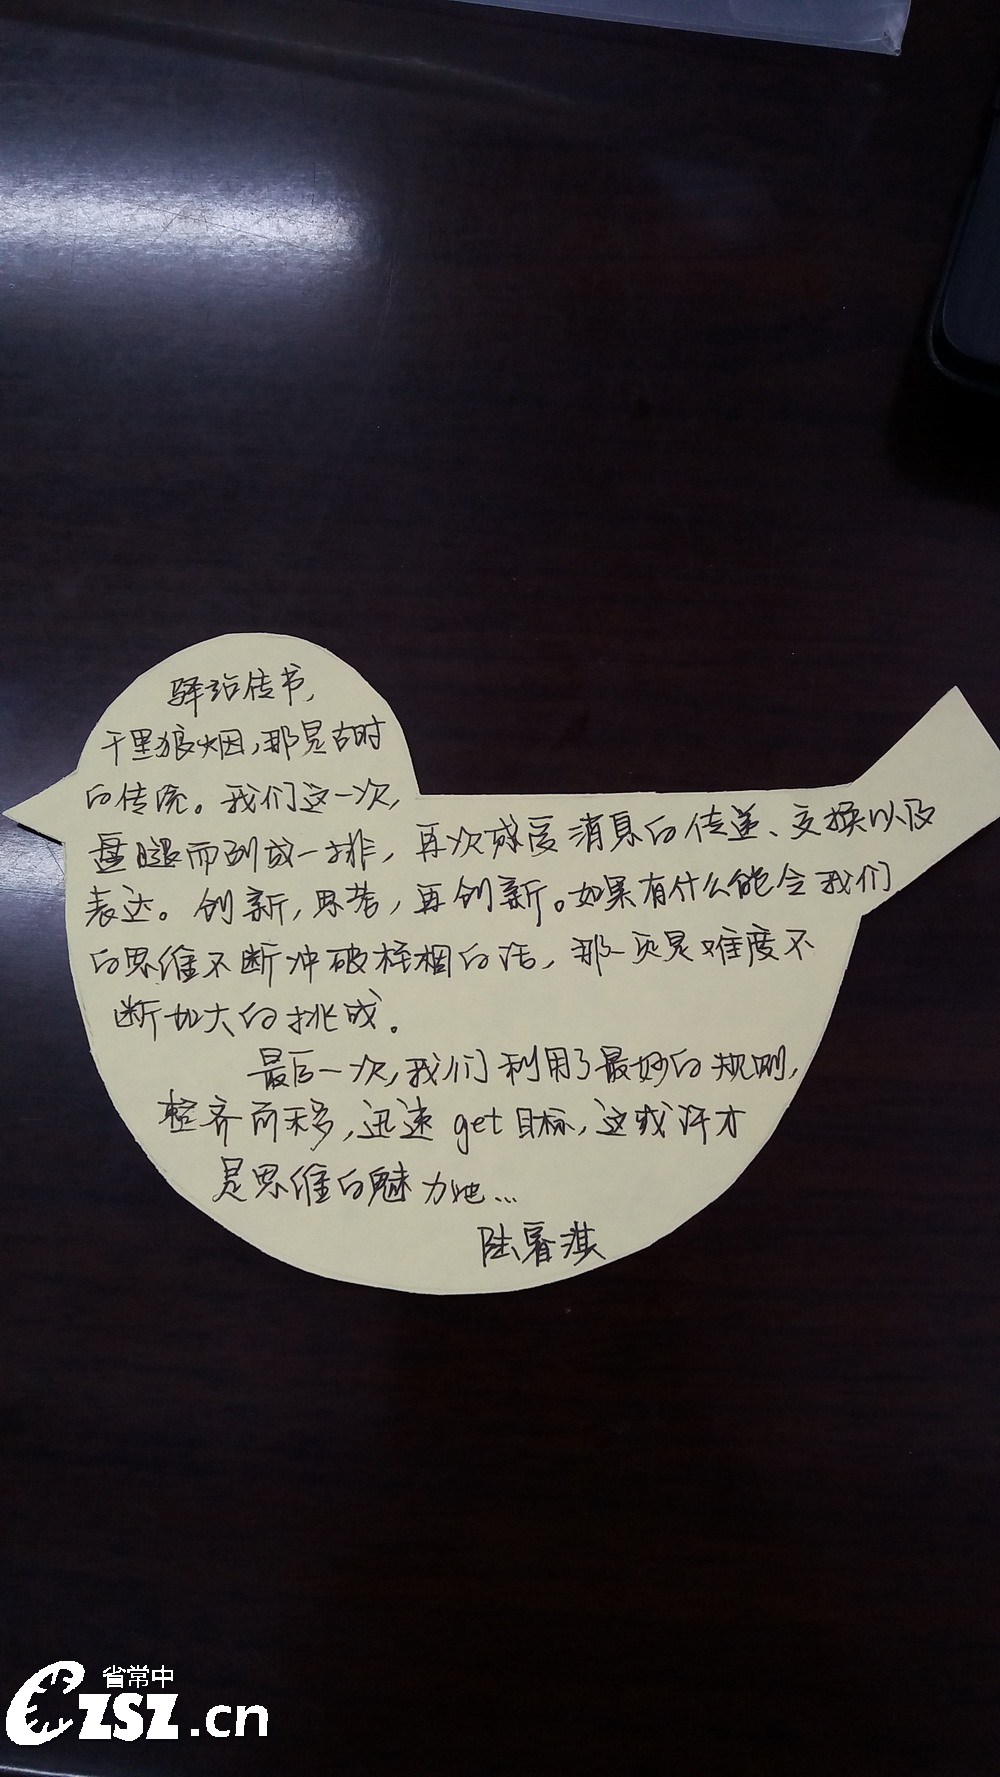 驿站传书，
千里狼烟，那是古时
的传统。我们这一次，
盘腿而列成一排，再次感受消息的传递、交换以及
表达。创新，思考，再创新。如果有什么能令我们
的思维不断冲破桎梏的话，那一定是难度不
断加大的挑战。
最后一次，我们利用了最妙的规则，
整齐而不移，迅速get目标，这或许才
是思维的魅力吧…
陆睿淇
省常中
CZSZ.cn